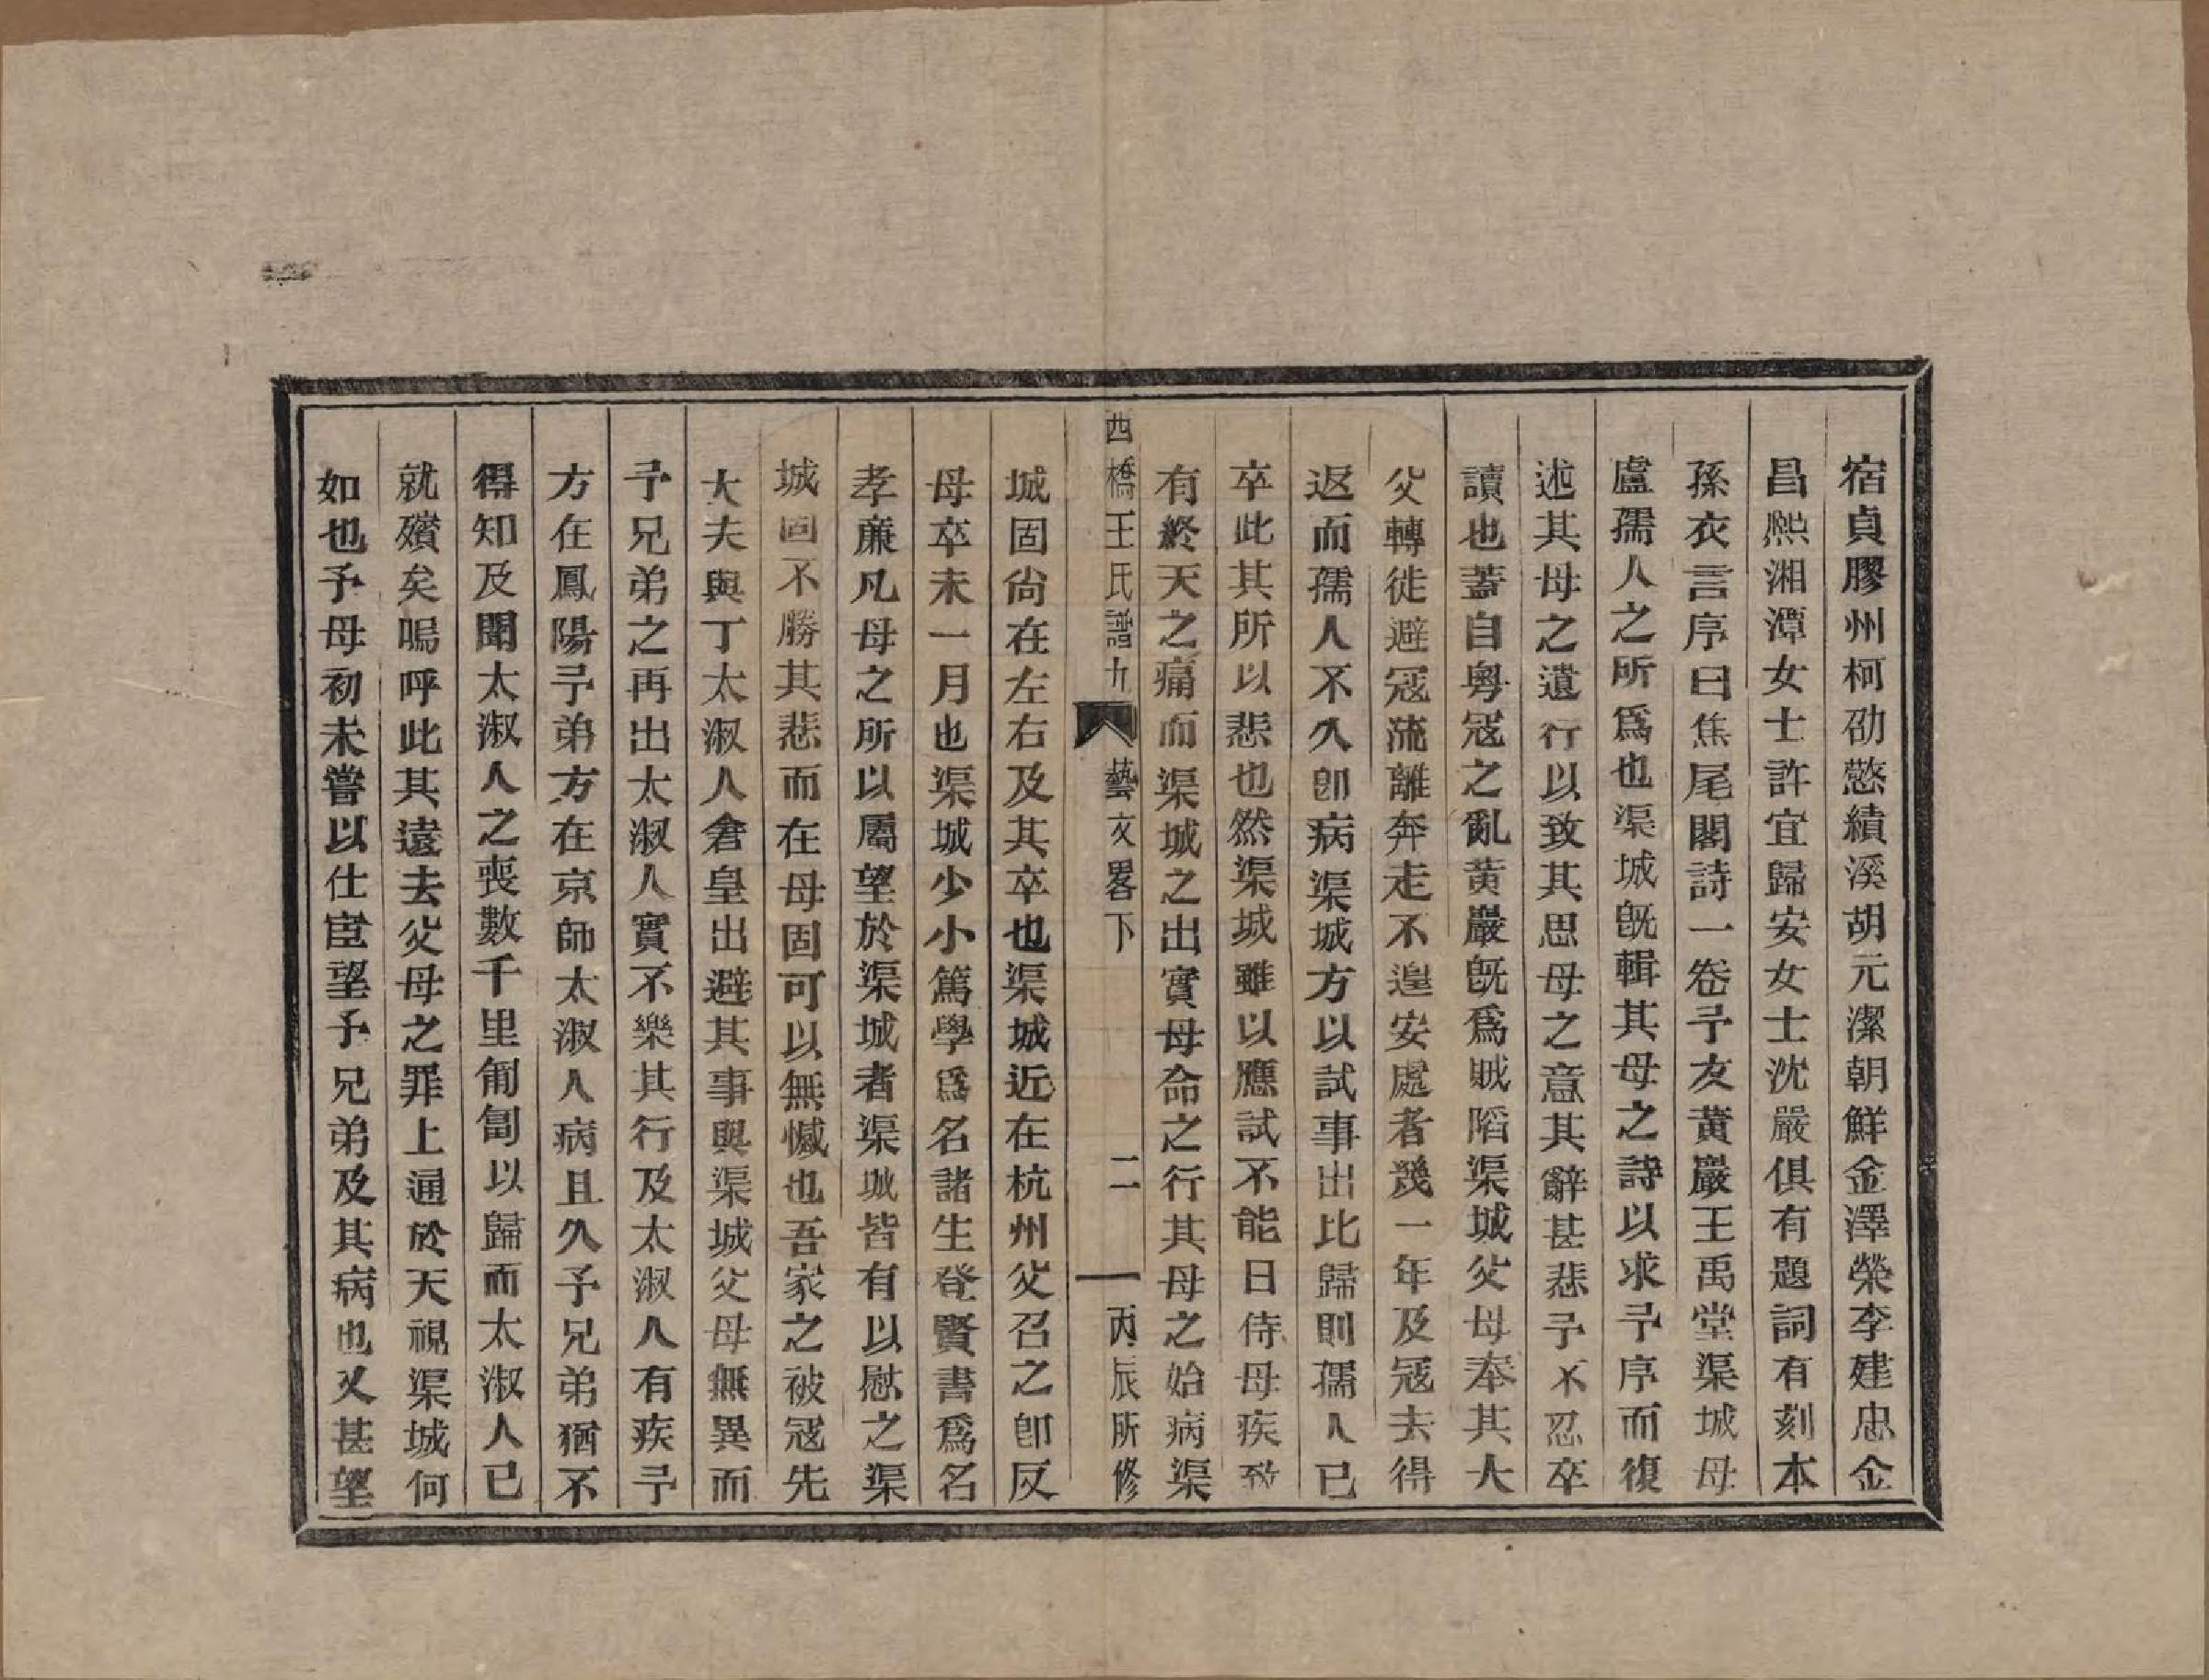 宿貞膠州柯劭憼績溪胡元潔朝鮮金澤榮李建忠金
昌熙湘潭女士許宜歸安女士沈嚴俱有題詞有刻本
孫衣言序曰焦尾閣詩一卷予友黃巖王禹堂渠城母
盧孺人之所爲也渠城旣輯其母之詩以求予序而復
述其母之遺行以致其思母之意其辭甚悲予不忍卒
讀也蓋自粵寇之亂黃巖旣爲賊陷渠城父母奉其大
父轉徙避寇流離奔走不遑安處者幾一年及寇去得
返而孺人不久卽病渠城方以試事出比歸則孺人已
卒此其所以悲也然渠城雖以應試不能日侍母疾致
有終天之痛而渠城之出實母命之行其母之始病渠
西橋王氏譜九 藝文畧下 二 丙辰所修
城固尙在左右及其卒也渠城近在杭州父召之卽反
母卒未一月也渠城少小篤學爲名諸生登賢書爲名
孝廉凡母之所以屬望於渠城者渠城皆有以慰之渠
城固不勝其悲而在母固可以無憾也吾家之被寇先
大夫與丁太淑人倉皇出避其事與渠城父母無異而
予兄弟之再出太淑人實不樂其行及太淑人有疾予
方在鳳陽予弟方在京師太淑人病且久予兄弟猶不
得知及聞太淑人之喪數千里匍匐以歸而太淑人已
就殯矣嗚呼此其遠去父母之罪上通於天視渠城何
如也予母初未嘗以仕宦望予兄弟及其病也又甚望